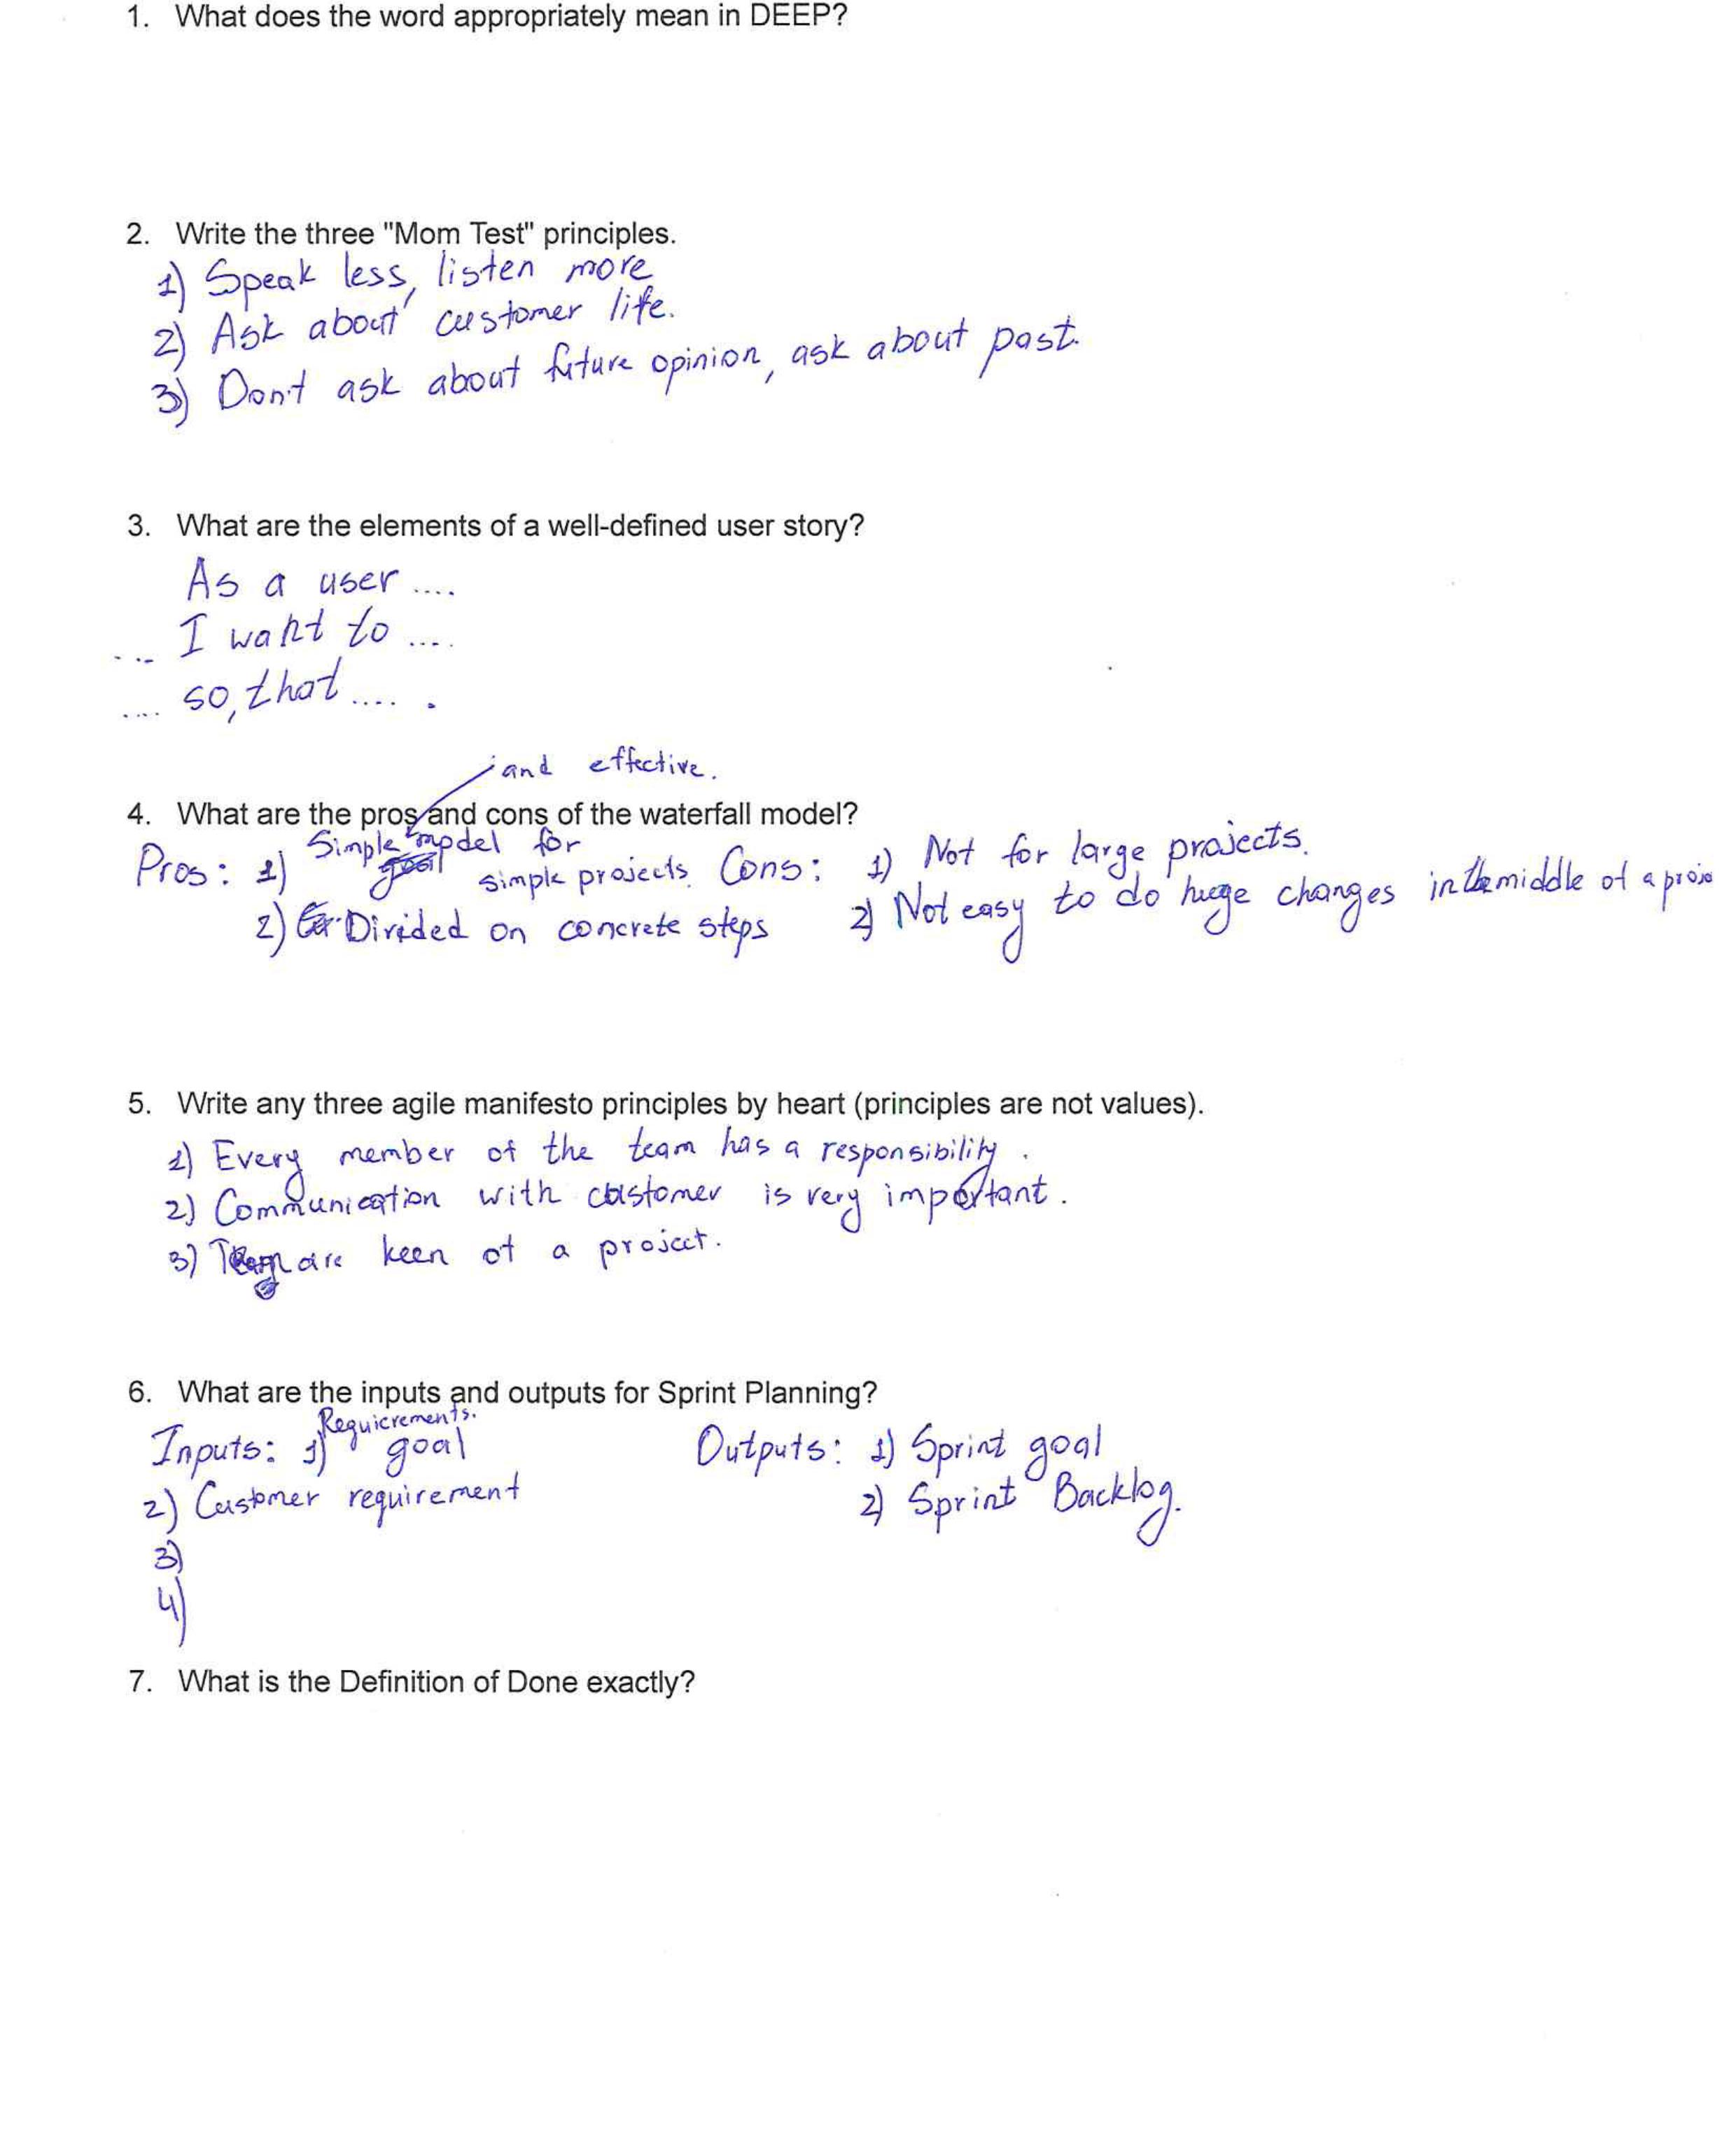 1. What does the word appropriately mean in DEEP?
2. Write the three "Mom Test" principles.
1) Speak less, listen more
2) Ask about customer life.
3) Don't ask about future opinion, ask about past.
3. What are the elements of a well-defined user story?
As a user ....
... I want to ....
.... so, that .... .
and effective.
4. What are the pros and cons of the waterfall model?
Pros: 1) Simple model for simple projects.
2) Divided on concrete steps
Cons: 1) Not for large projects.
2) Not easy to do huge changes in the middle of a proje
5. Write any three agile manifesto principles by heart (principles are not values).
1) Every member of the team has a responsibility.
2) Communication with customer is very important.
3) are keen of a project.
6. What are the inputs and outputs for Sprint Planning?
Requicrements.
Inputs: 1) goal
2) Customer requirement
3)
4)
Outputs: 1) Sprint goal
2) Sprint Backlog.
7. What is the Definition of Done exactly?